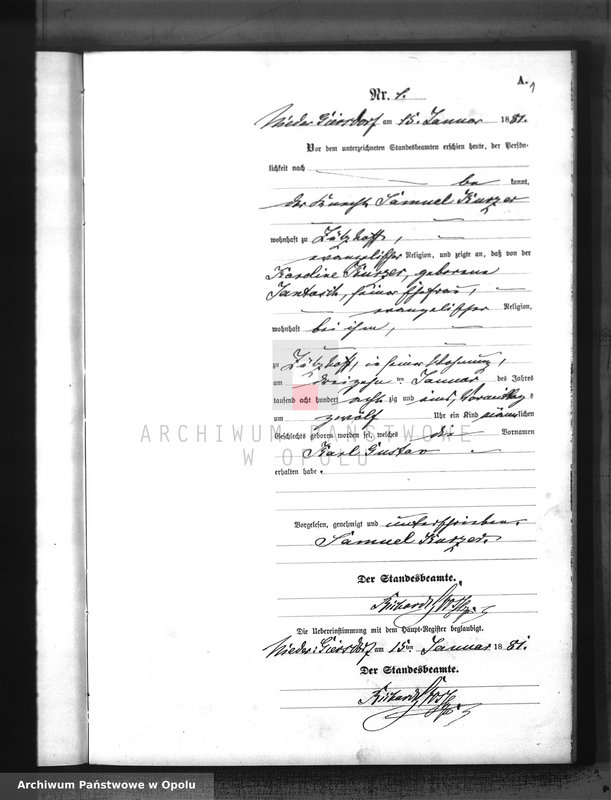 A. 1
Nr. 1.
Nieder Giersdorf am 15. Januar 1881.
Vor dem unterzeichneten Standesbeamten erschien heute, der Persön-
lichkeit nach be kannt,
der Knecht Samuel Kurzer
wohnhaft zu
evangelischer Religion, und zeigte an, daß von der
Karoline Kurzer, geborene
seiner Ehefrau,
evangelischer Religion,
wohnhaft bei ihm,
zu in seiner Wohnung,
am dreizehn ten Januar des Jahres
tausend acht hundert acht zig und eins, Vormittags
um zwölf Uhr ein Kind männlichen
Geschlechts geboren worden sei, welches die Vornamen
Karl Gustav
erhalten habe.
Vorgelesen, genehmigt und unterschrieben.
Samuel Kurzer.
Der Standesbeamte.
Die Uebereinstimmung mit dem Haupt-Register beglaubigt.
Nieder Giersdorf am 15ten Januar 1881.
Der Standesbeamte.
ARCHIWUM PAŃSTWOWE
W OPOLU
Archiwum Państwowe w Opolu